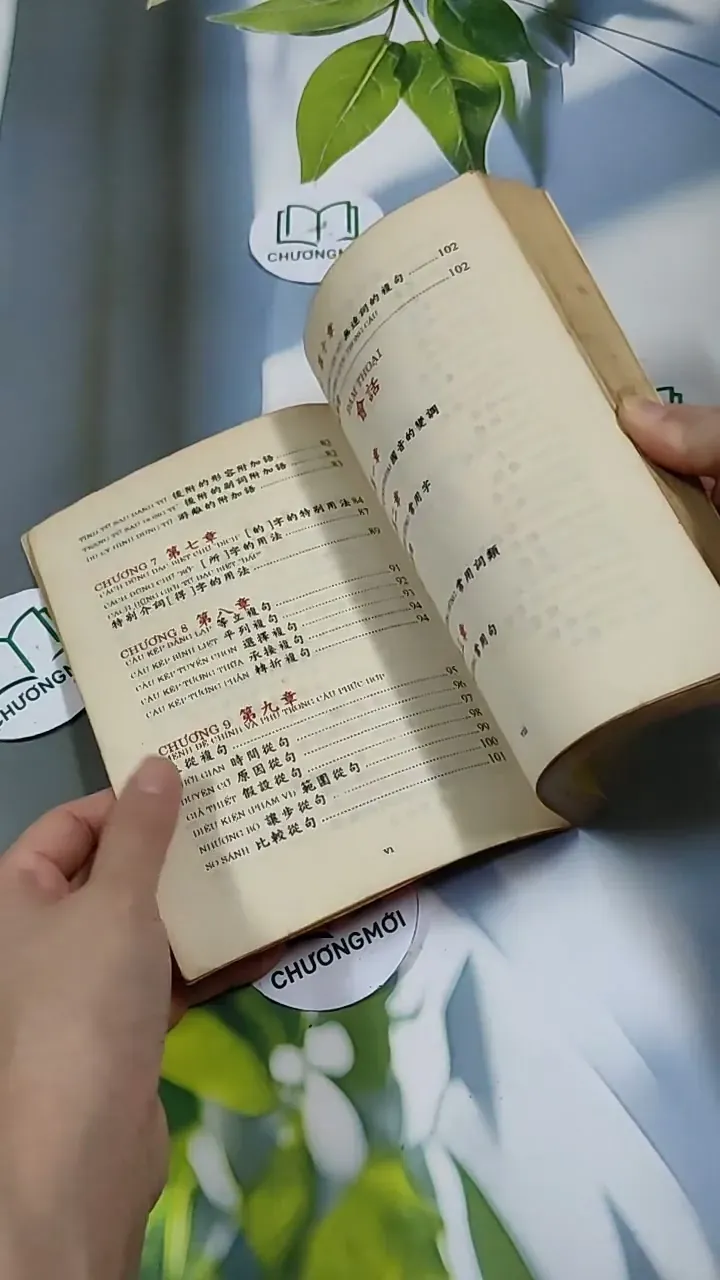 CHƯƠNGM
後附的形容附加語 83
TRẠNG TỪ SAU ĐỘNG TỪ 後附的副詞附加語 83
游離的附加語 83
CHƯƠNG 7 第七章
CÁCH DÙNG ĐẶC BIỆT CHỮ "ĐÍCH" [的]字的特別用法 84
CÁCH DÙNG CHỮ "SỞ" [所]字的用法 87
CÁCH DÙNG GIỚI TỪ ĐẶC BIỆT "ĐẮC"
特別介詞[得]字的用法 89
CHƯƠNG 8 第八章
CÂU KÉP ĐẲNG LẬP 等立複句 91
CÂU KÉP BÌNH LIỆT 平列複句 92
CÂU KÉP TUYỂN CHỌN 選擇複句 93
CÂU KÉP TƯƠNG THỪA 承接複句 94
CÂU KÉP TƯƠNG PHẢN 轉折複句 94
CHƯƠNG 9 第九章
MỆNH ĐỀ CHÍNH VÀ PHỤ TRONG CÂU PHỨC HỢP
從複句 95
THỜI GIAN 時間從句 96
DUYÊN CỚ 原因從句 97
GIẢ THIẾT 假設從句 98
ĐIỀU KIỆN (PHẠM VI) 範圍從句 99
NHƯỢNG BỘ 讓步從句 100
SO SÁNH 比較從句 101
VI
102
連詞的複句 102
ĐÀM THOẠI
會話
音的變調
常用字
常用詞類
常用句
CHƯƠNGM
CHƯƠNGMỚI